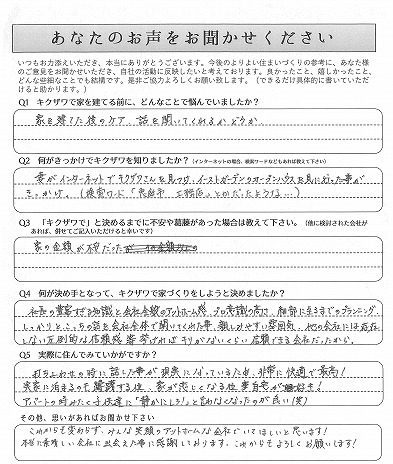 あなたのお声をお聞かせください
いつもお力添えいただき、本当にありがとうございます。今後のよりよい住まいづくりの参考に、あなた様
のご意見をお聞かせいただき、自社の活動に反映したいと考えております。良かったこと、嬉しかったこと、
どんな些細なことでも結構です。是非ご協力よろしくお願い致します。（できるだけ具体的に書いていただけ
ると助かります。）
Q1 キクザワで家を建てる前に、どんなことで悩んでいましたか？
家を建てた後のケア、話を聞いてくれるかどうか
Q2 何がきっかけでキクザワを知りましたか？（インターネットの場合、検索ワードなどもあれば教えて下さい）
妻がインターネットでキクザワさんを見つけ、イーストガーデンのオープンハウスを見に行った事が
きっかけ。（検索ワード「恵庭市 工務店」とかだったような…）
Q3 「キクザワで」と決めるまでに不安や葛藤があった場合は教えて下さい。（他に検討された会社が
あれば、併せてご記入いただけると幸いです）
家の金額が不安だった
Q4 何が決め手となって、キクザワで家づくりをしようと決めましたか？
社長の豊富すぎる知識と会社全体のアットホーム感、プロ意識の高さ、細部に至るまでのプランニング、
しっかりとこっちの話を会社全体で聞いてくれた事、親しみやすい雰囲気、他の会社には存在
しない圧倒的な信頼感 等 挙げればキリがないくらい信頼できる会社だったから。
Q5 実際に住んでみていかがですか？
打ち合わせの時に話した事が現実になっているため、非常に快適で最高！
実家に泊まるのも躊躇する位、家が恋しくなる位 最高です！
アパートの時みたく子供達に「静かにしろ！」と言わなくなったのが良い（笑）
その他、思いがあればお聞かせ下さい
これからも変わらず、みんな笑顔のアットホームな会社でいてほしいと思います！
本当に素晴しい会社に出会えた事に感謝しております。これからもよろしくお願いします！